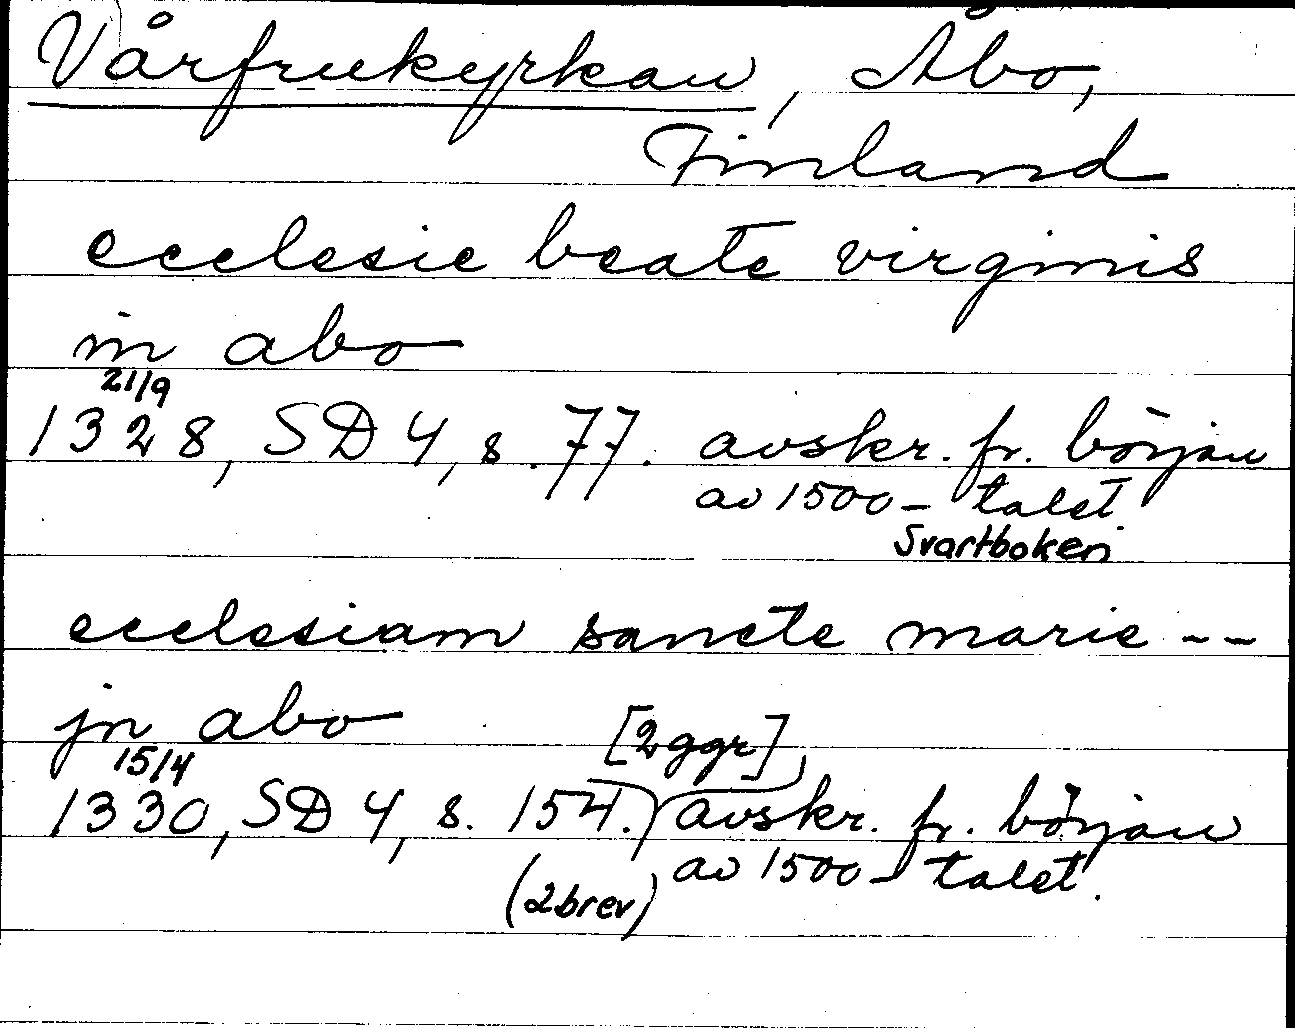 Vårfrukyrkan, Åbo,
Finland
ecclesie beate virginis
in abo
21/9
1328, SD 4, s. 77. avskr. fr. början
av 1500-talet.
Svartboken
ecclesiam sancte marie --
jn abo [2 ggr]
15/4
1330, SD 4, s. 154. avskr. fr. början
av 1500-talet.
(2 brev)